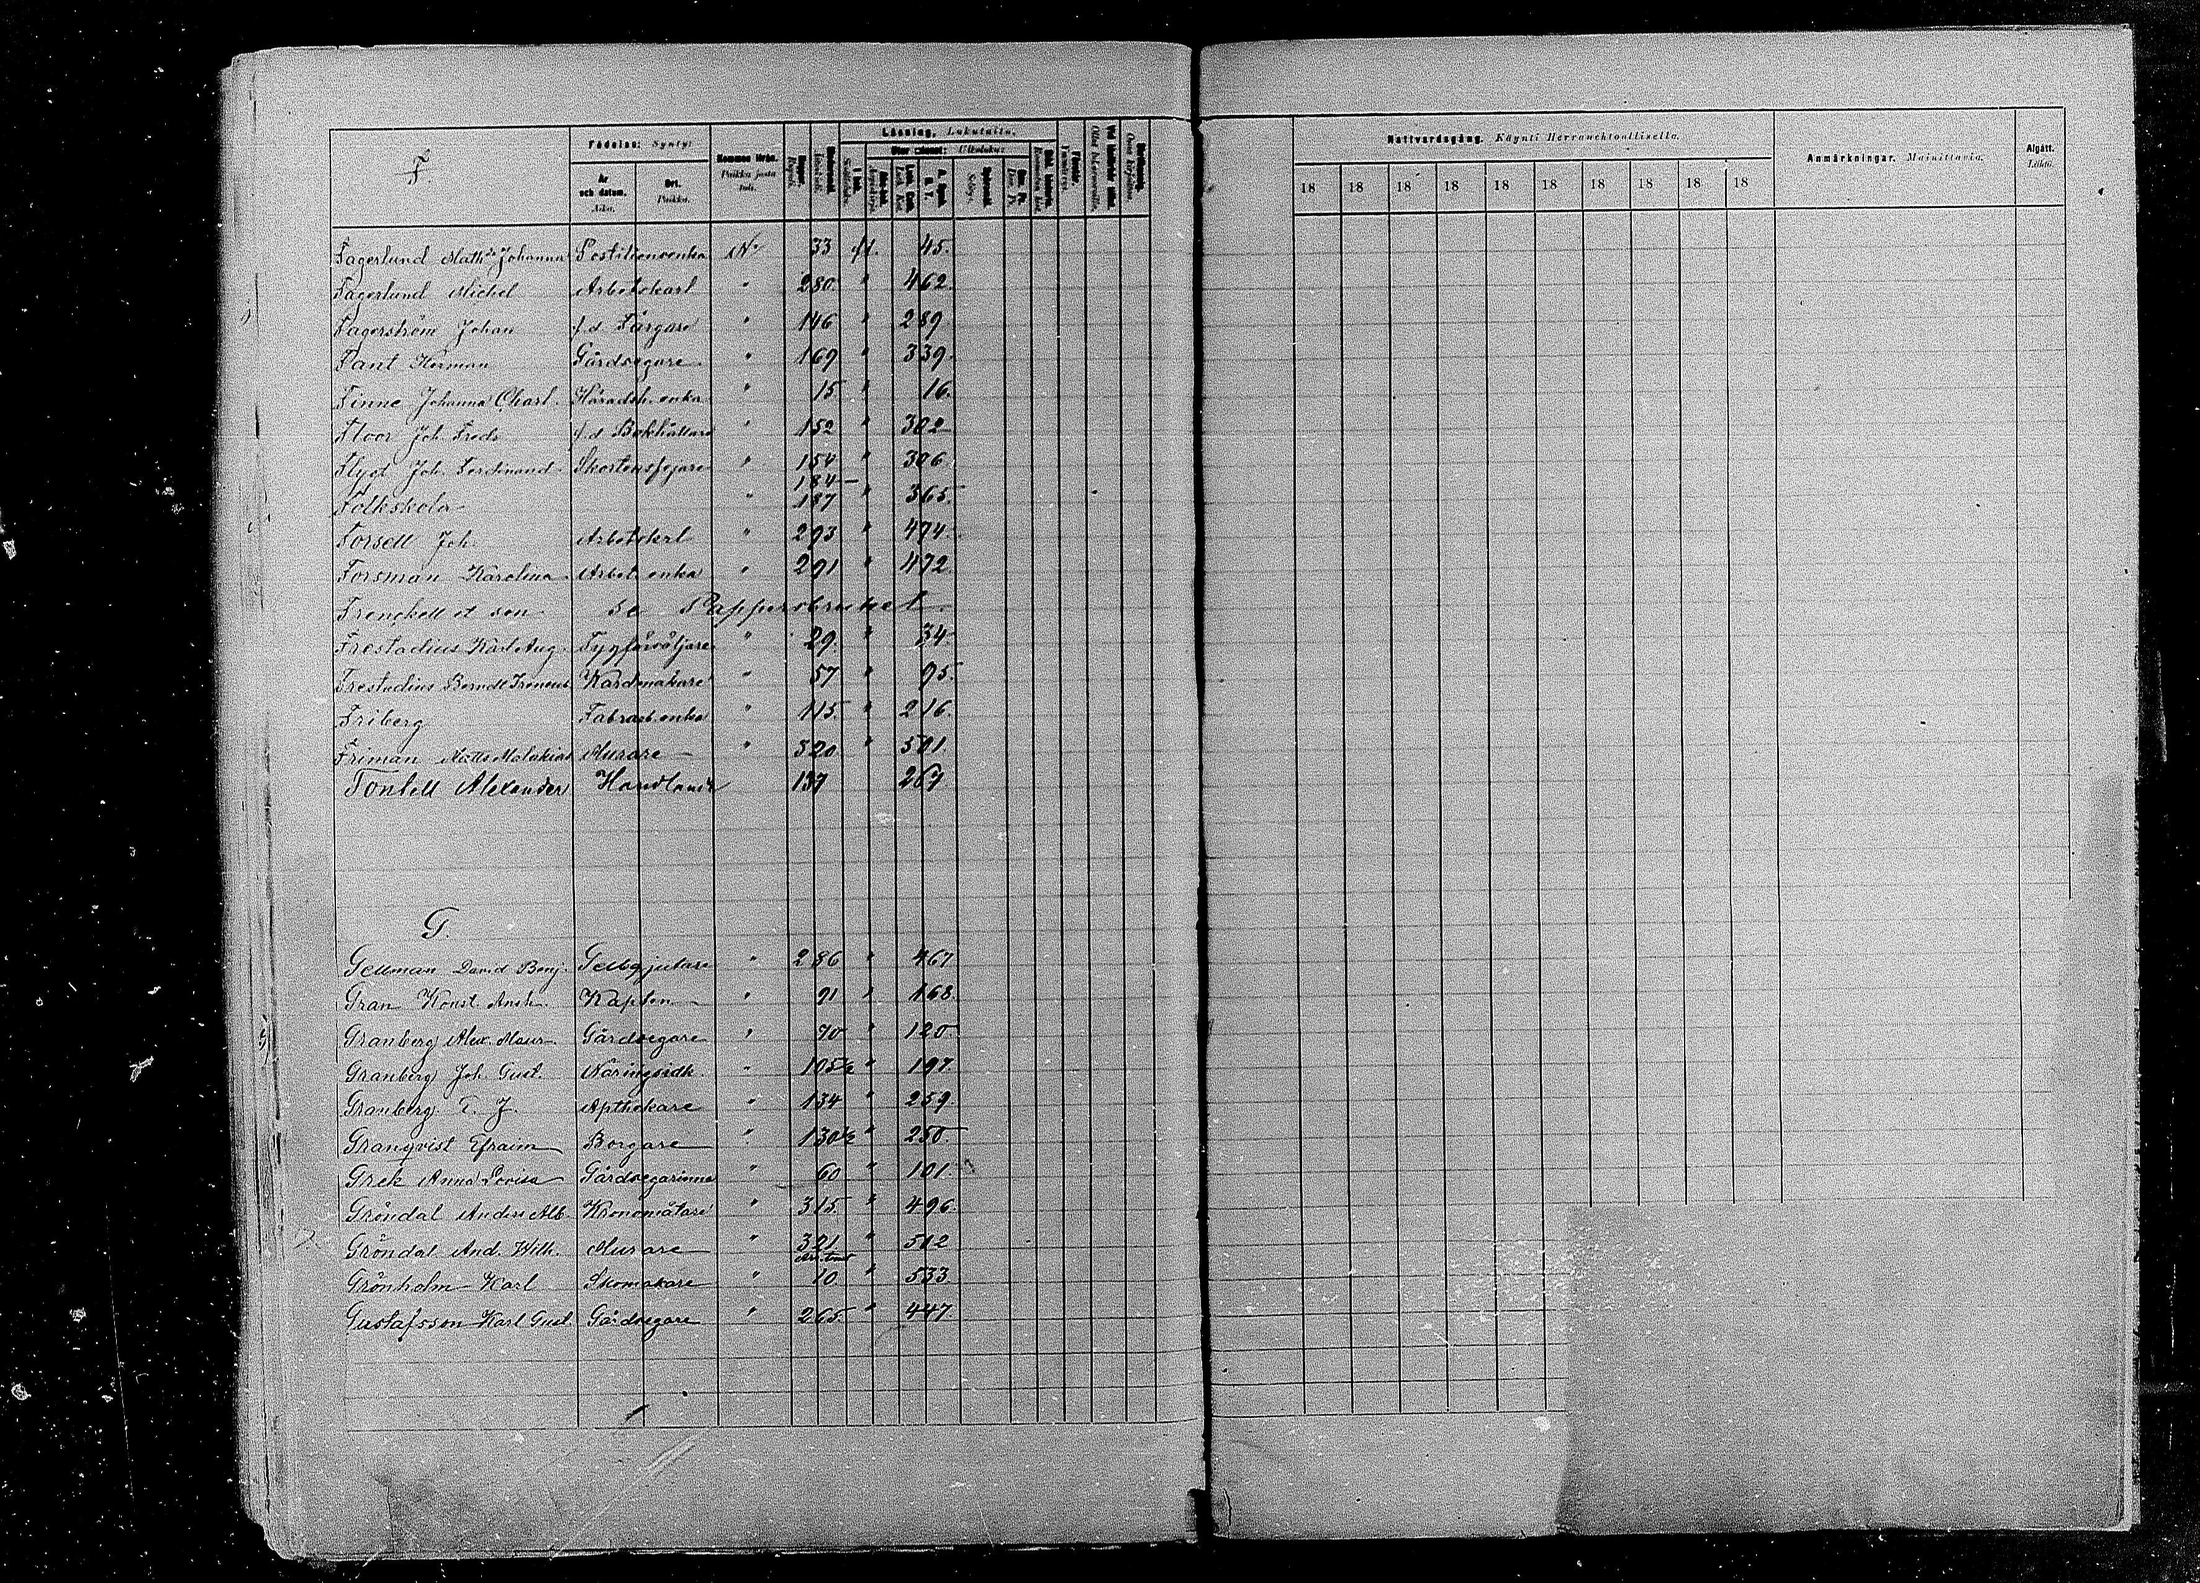 F.
Födelse: Synty:
År och datum. Aika.
Ort. Paikka.
Kommen ifrån. Paikka josta tuli.
Läsning. Lukutaito.
Nattvardsgång. Käynti Herranehtoollisella.
18 18 18 18 18 18 18 18 18 18
Anmärkningar. Mainittavia.
Afgått. Lähti.
Fagerlund Math:a Johanna Postiljonsenka N:o 33 45.
Fagerlund Michel Arbetskarl " 280 " 462
Fagerström Johan f.d. Färgare " 146 " 289
Fant Herman Gårdsegare " 169 " 339.
Finne Johanna Charl. Häradsh. enka " 15 " 16.
Floor Joh Fredr f.d Bokhållare " 152 " 302
Flygt Joh. Ferdinand Skorstensfejare " 154 " 306
184
Folkskola " 187 " 365
Forsell Joh. Arbetskarl " 293 " 474
Forsman Karolina Arbet. enka " 291 " 472
Frenckell et son se Pappersbruket.
Frestadius Karl Aug. Tygförvaltjare " 29. " 34
Frestadius Berndt Kardmakare " 57 " 95.
Friberg Fabrarb. enka " 115 " 216.
Friman Matts Malakias Murare " 320 " 501
Fontell Alexander Handlande 137 267
G.
Gellman David Benj. Gelbgjutare " 286 " 467
Gran Konst. Kapten " 91 " 168.
Granberg Alex. Maur. Gårdsegare " 70 " 120
Granberg Joh Gust. Näringsidk. " 105½ " 197
Granberg T. J. Apthekare " 134 " 259.
Granqvist Efraim Borgare " 130½ " 250
Grek Anna Lovisa Gårdsegarinna " 60 " 101.
Gröndal Anders Alb. Kronomätare " 315. " 496.
Gröndal And. Wilh. Murare " 321 " 512
Grönholm Karl Skomakare " 10 " 533
Gustafsson Karl Gust Gårdsegare " 265. " 447.